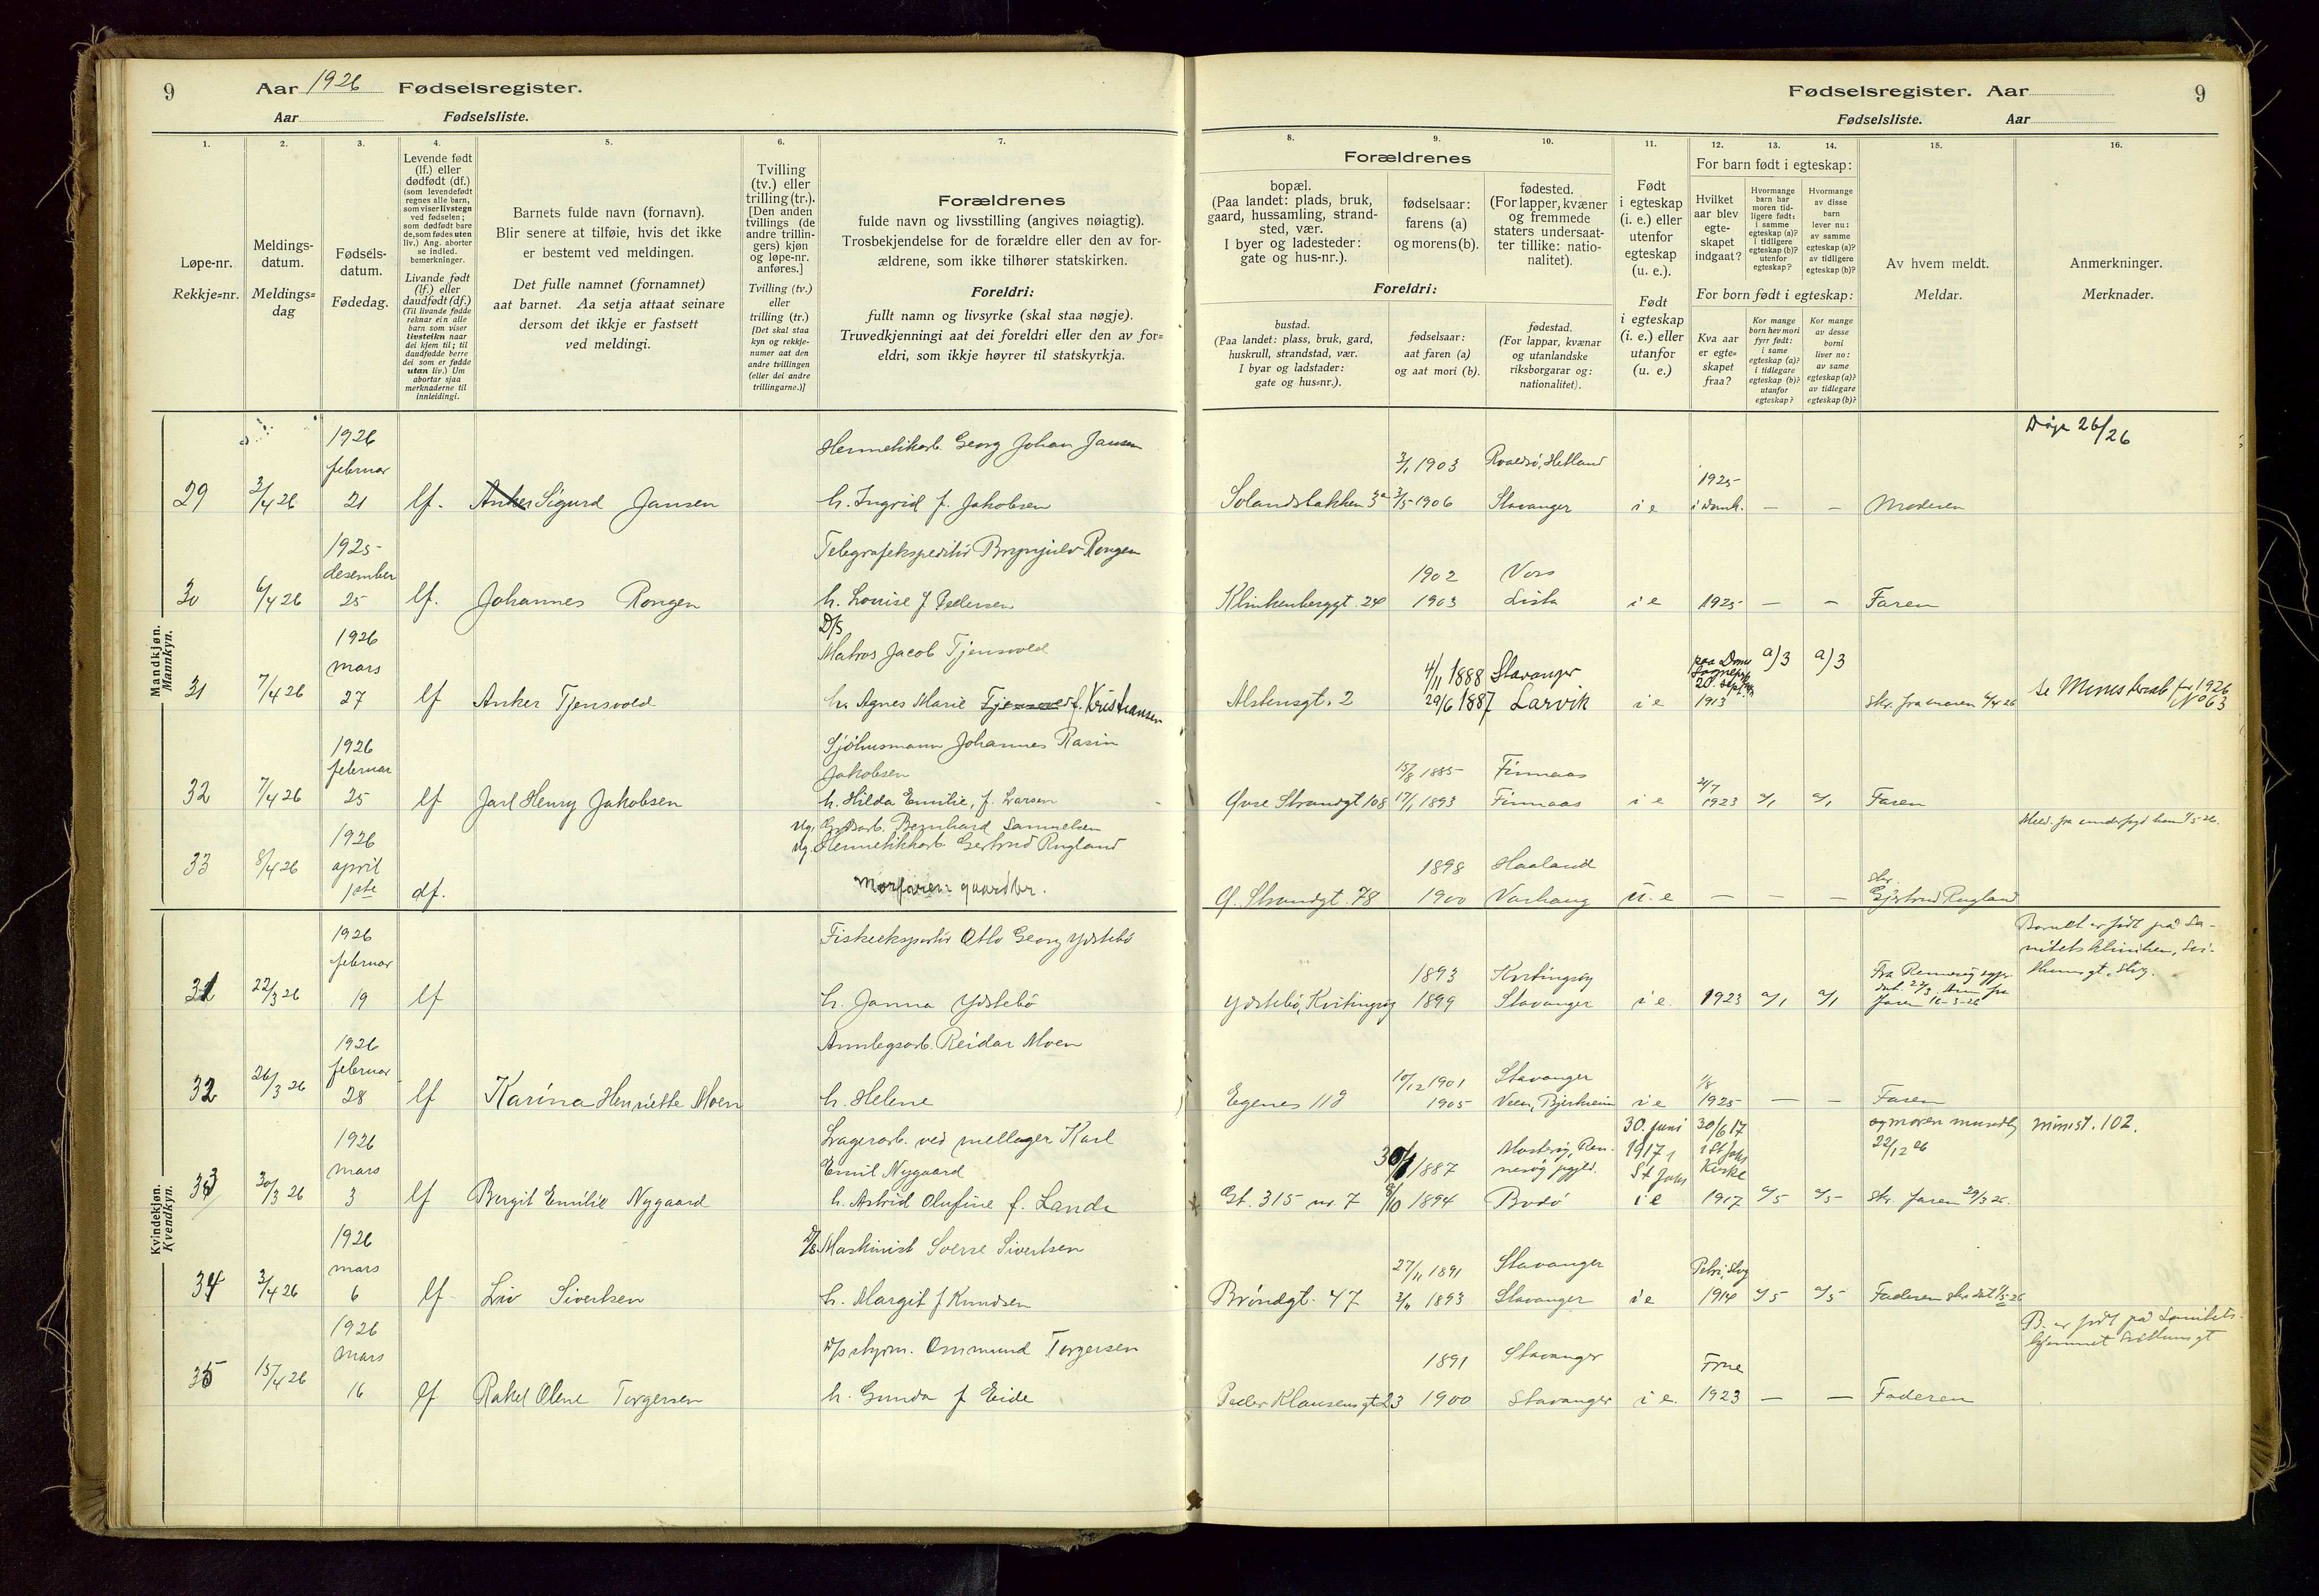 9
Aar 1926 Fødselsregister.
Aar Fødselsliste.
1.
Løpe-nr.
Rekkje=nr.
2.
Meldings-
datum.
Meldings=
dag
3.
Fødsels-
datum.
Fødedag.
4.
Levende født
(lf.) eller
dødfødt (df.)
(som levendefødt
regnes alle barn,
som viser livstegn
ved fødselen;
som dødfødt bare
de, som fødes uten
liv.) Ang. aborter
se indled.
bemerkninger.
Livande født
(lf.) eller
daudfødt (df.)
(Til livande fødde
reknar ein alle
barn som viser
livsteikn naar
dei kjem til; til
daudfødde berre
dei som er fødde
utan liv.) Um
abortar sjaa
merknaderne til
innleidingi.
5.
Barnets fulde navn (fornavn).
Blir senere at tilføie, hvis det ikke
er bestemt ved meldingen.
Det fulle namnet (fornamnet)
aat barnet. Aa setja attaat seinare
dersom det ikkje er fastsett
ved meldingi.
6.
Tvilling
(tv.) eller
trilling (tr.).
[Den anden
tvillings (de
andre trillin-
gers) kjøn
og løpe-nr.
anføres.]
Tvilling (tv.)
eller
trilling (tr.)
[Det skal staa
kyn og rekkje-
numer aat den
andre tvillingen
(eller dei andre
trillingarne.)]
7.
Forældrenes
fulde navn og livsstilling (angives nøiagtig).
Trosbekjendelse for de forældre eller den av for-
ældrene, som ikke tilhører statskirken.
Foreldri:
fullt namn og livsyrke (skal staa nøgje).
Truvedkjenningi aat dei foreldri eller den av for=
eldri, som ikkje høyrer til statskyrkja.
Fødselsregister. Aar
9
Fødselsliste. Aar
8.
Forældrenes
bopæl.
(Paa landet: plads, bruk,
gaard, hussamling, strand-
sted, vær.
I byer og ladesteder:
gate og hus-nr.).
Foreldri:
bustad.
(Paa landet: plass, bruk, gard,
huskrull, strandstad, vær.
I byar og ladstader:
gate og hus=nr.).
9.
fødselsaar:
farens (a)
og morens (b).
fødselsaar:
aat faren (a)
og aat mori (b).
10.
fødested.
(For lapper, kvæner
og fremmede
staters undersaat-
ter tillike: natio-
nalitet).
fødestad.
(For lappar, kvænar
og utanlandske
riksborgarar og:
nationalitet).
11.
Født
i egteskap
(i. e.) eller
utenfor
egteskap
(u. e.).
Født
i egteskap
(i. e.) eller
utanfor
(u. e.)
12.
13.
14.
For barn født i egteskap:
Hvilket
aar blev
egte-
skapet
indgaat?
Hvormange
barn har
moren tid-
ligere født:
i samme
egteskap (a)?
i tidligere
egteskap (b)?
utenfor
egteskap?
Hvormange
av disse
barn
lever nu:
av samme
egteskap (a)?
av tidligere
egteskap (b)?
For born født i egteskap:
Kva aar
er egte=
skapet
fraa?
Kor mange
born hev mori
fyrr født:
i same
egteskap (a)?
i tidlegare
egteskap (b)?
utanfor
egteskap?
Kor mange
av desse
borni
liver no:
av same
egteskap (a)?
av tidlegare
egteskap (b)?
15.
Av hvem meldt.
Meldar.
16.
Anmerkninger.
Merknader.
Mandkjøn.
Mannkyn.
Døpt 26/26
1926
februar
29 3/4 26 21 lf. Anker Sigurd Jansen
Hermetikkarb. Georg Johan Jansen
h. Ingrid f. Jakobsen
Solandsbakken 3a 3/1 1903 Roaldsø, Hetland
3/5 1906 Stavanger i e 1925 i Domk. — — Moderen
1925
desember
30 6/4 26 25 lf. Johannes Rongen
Telegrafekspeditør Brynjulv Rongen
h. Louise f Pedersen
Klinkenberggt. 24 1902 Vors
1903 Lista i e 1925 — — Faren
1926
mars
31 7/4 26 27 lf Anker Tjensvold
D/S
Matros Jacob Tjensvold
h. Agnes Marie Tjensvold f. Kristiansen
Alstensgt. 2 4/11 1888 Stavanger
29/6 1887 Larvik i e 1913 a) 3 a) 3
skr. fra moren 6/4 26
se Minist.bok for 1926 No 63
1926
februar
32 7/4 26 25 lf Jarl Henry Jakobsen
Sjøhusmann Johannes Rasin
Jakobsen
h. Hilda Emilie, f. Larsen
Øvre Strandgt 108 15/8 1885 Finnaas
17/1 1893 Finnaas i e 1923 a/1 a/1 Faren
1926
april
33 8/4 26 1ste df.
Ug. Bernhard Samuelsen
Ug. Hermetikkarb Gertrud Rugland
Morfaren: gaardbr.
Ø. Strandgt. 78 1898 Haaland
1900 Varhaug u. e — — —
skr.
Gjertrud Rugland
Kvindekjøn.
Kvendkyn.
1926
februar
31 22/3 26 19 lf
Fiskeeksportør Otto Georg Ydstebø
h. Janna Ydstebø
Ydstebø, Kvitingsøy 1893 Kvitingsøy
1899 Stavanger i e. 1923 a/1 a/1
Faren 16-3-26
Barnet er født på Sa-
nitetsklinikken,
1926
februar
32 26/3 26 28 lf Karina Henriette Moen
Anlegsarb. Reidar Moen
h. Helene
Egenes 118 10/12 1901 Stavanger
1905 i e 1/8 1925 — — Faren
og moren mundtlig
22/12 26
minist. 102.
1926
mars
33 30/3 26 3 lf Bergit Emilie Nygaard
Lagerarb. ved mellager Karl
Emil Nygaard
h. Astrid Olufine f. Lande
Gt. 315 nr. 7 1887 Mosterøy, Ren-
nesøy pgjld.
8/10 1894 Bodø
30. juni
1917 i
St Johs
i e
30/6 17
i St Johs
Kirke
1917 a/5 a/5 skr. faren 29/3 26.
1926
mars
34 3/4 26 6 lf Liv Sivertsen
D/S Maskinist Sverre Sivertsen
h. Margit f Knudsen
Brøndgt. 47 27/11 1891 Stavanger
1893 Stavanger i e Petri, Stvg
1914 a/5 a/5 Faderen
1926
mars
35 15/4 26 16 lf Rakel Olene Torgersen
D/S styrm. Ommund Torgersen
h. Gunda f Eide
Peder Klausensgt 23 1891 Stavanger
1900 Stavanger i e. Frue
1923 — — Faderen
B. er født på Sanitets-
hjemmet